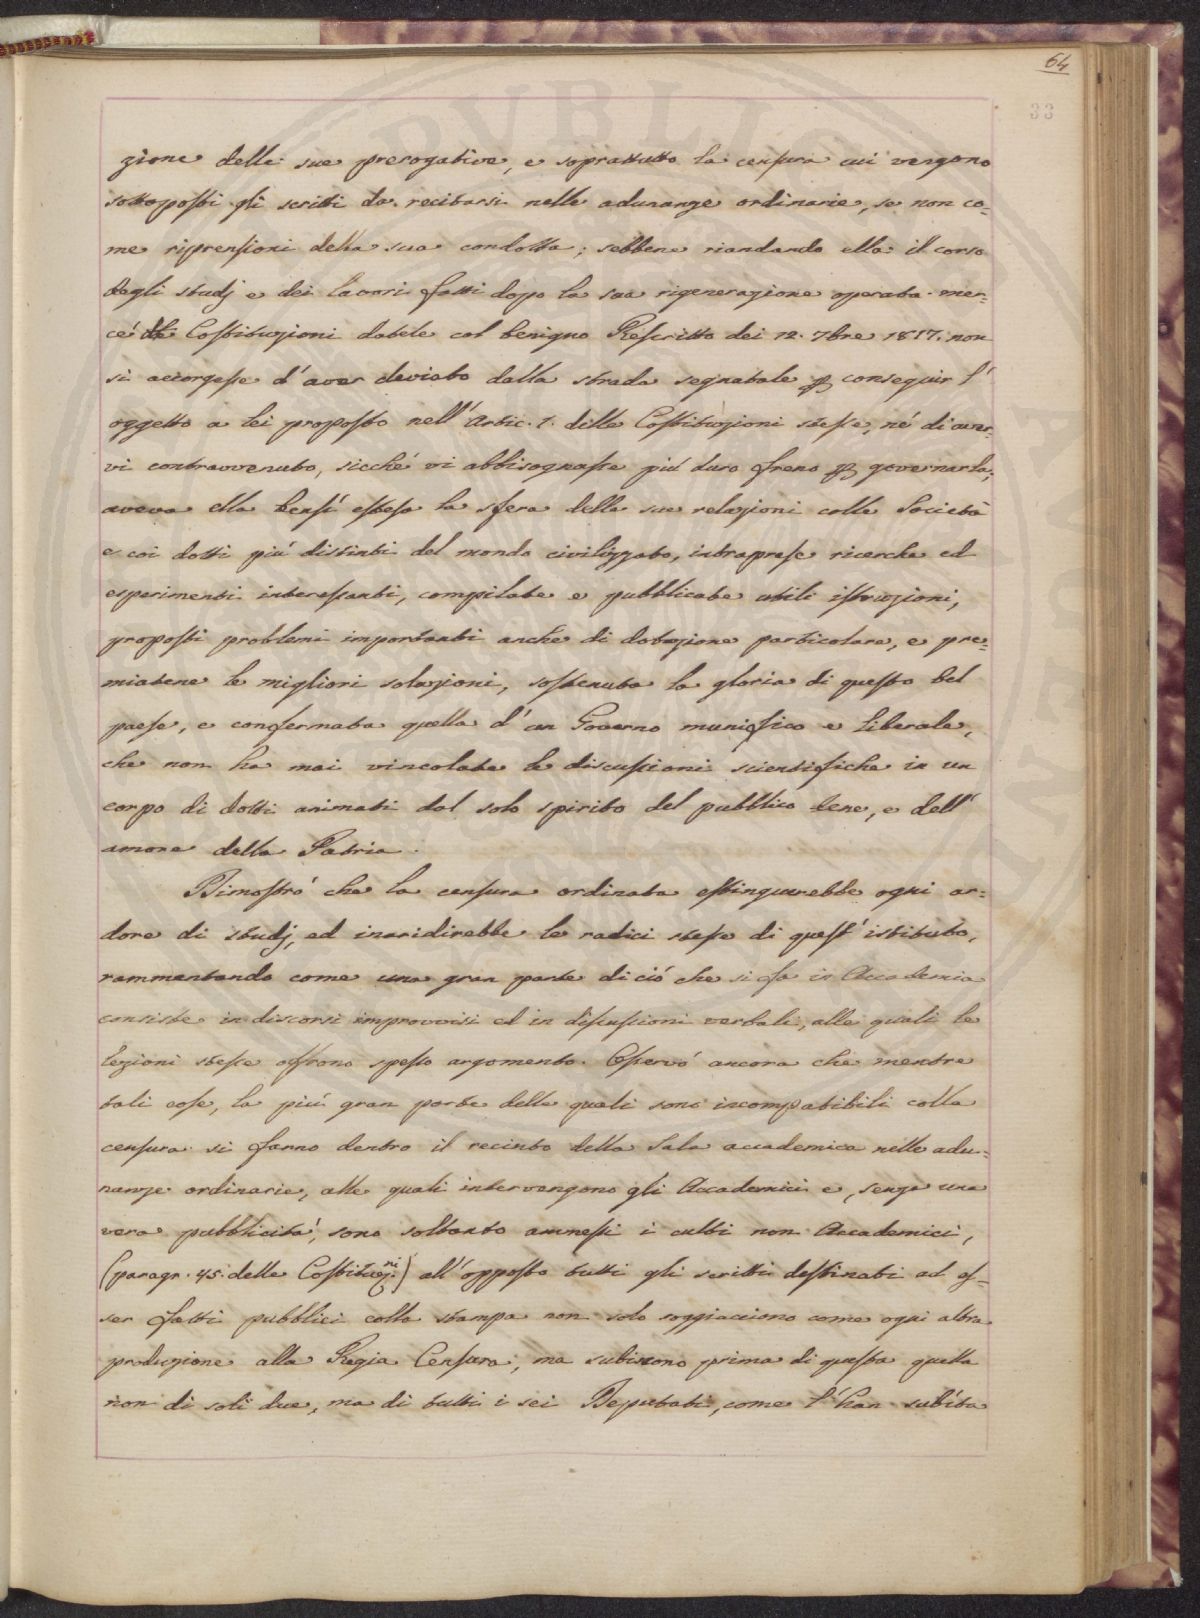 64
33
zione delle sue prerogative, e soprattutto la censura cui vengono
sottoposti gli scritti da recitarsi nelle adunanze ordinarie, se non co=
me riprensioni della sua condotta; sebbene riandando ella il corso
degli studj e dei lavori fatti dopo la sua rigenerazione operata mer=
cé le Costituzioni datele col benigno Rescritto dei 12. 7bre 1817. non
si accorgesse d'aver deviato dalla strada segnatale p conseguir l'
oggetto a lei proposto nell'Artic. 1. delle Costituzioni stesse, né di aver=
vi contravvenuto, sicché vi abbisognasse piú duro freno p governarla;
aveva ella bensí estesa la sfera delle sue relazioni colle Societá
e coi dotti piú distinti del mondo civilizzato, intraprese ricerche ed
esperimenti interessanti, compilate e pubblicate utili istruzioni,
proposti problemi importanti anche di dotazione particolare, e pre=
miatene le migliori soluzioni, sostenuta la gloria di questo bel
paese, e confermata quella d'un Governo munifico e liberale,
che non ha mai vincolate le discussioni scientifiche in un
corpo di dotti animati dal solo spirito del pubblico bene, e dell'
amore della Patria.
Dimostró che la censura ordinata estinguerebbe ogni ar=
dore di studj, ed inaridirebbe le radici stesse di quest'istituto,
rammentando come una gran parte di ció che si fa in Accademia
consiste in discorsi improvvisi ed in discussioni verbali, alle quali le
lezioni stesse offrono spesso argomento. Osservó ancora che mentre
tali cose, la piú gran parte delle quali sono incompatibili colla
censura si fanno dentro il recinto della Sala accademica nelle adu=
nanze ordinarie, alle quali intervengono gli Accademici e, senza una
vera pubblicitá, sono soltanto ammessi i culti non Accademici,
(paragr. 45. delle Costituz.ni) all'opposto tutti gli scritti destinati ad es=
ser fatti pubblici colla stampa non solo soggiacciono come ogni altra
produzione alla Regia Censura, ma subiscono prima di questa quella
non di soli due, ma di tutti i sei Deputati, come l'han subíta